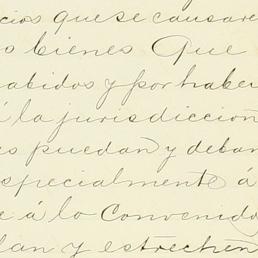 cios que se causare
o bienes. Que
abidos y por haber
á la jurisdiccion
es puedan y deban
specialmente á
e á lo Convenido
lan y estrechen